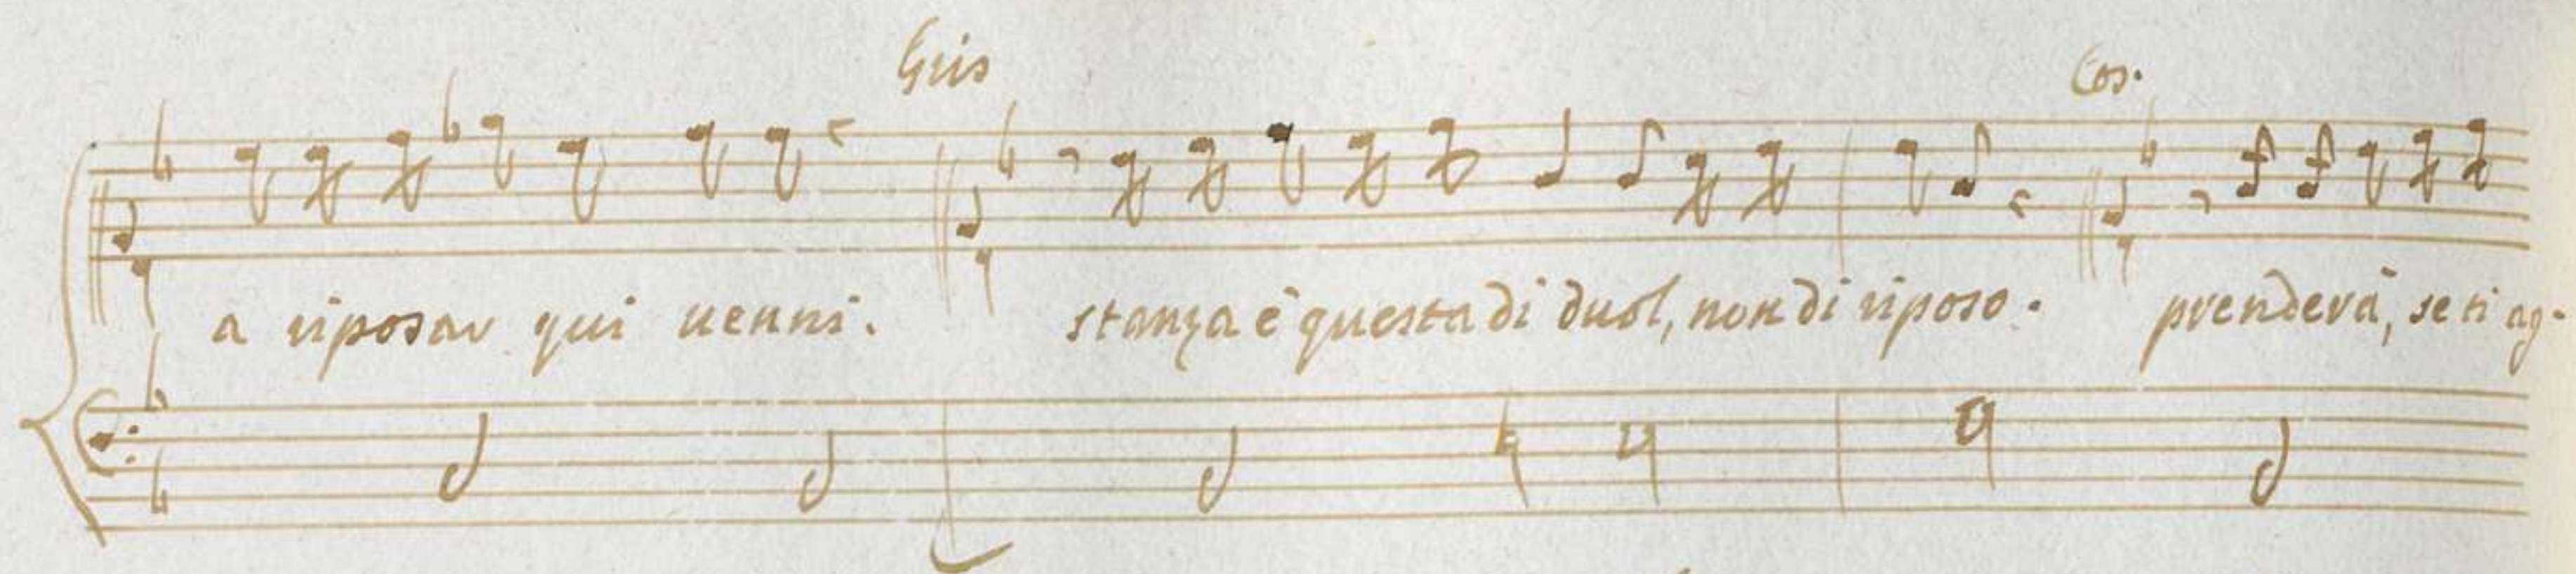 Gris Cos.
a riposar qui uenni. stanza è questa di duol, non di riposo. prenderà, se ti ag-